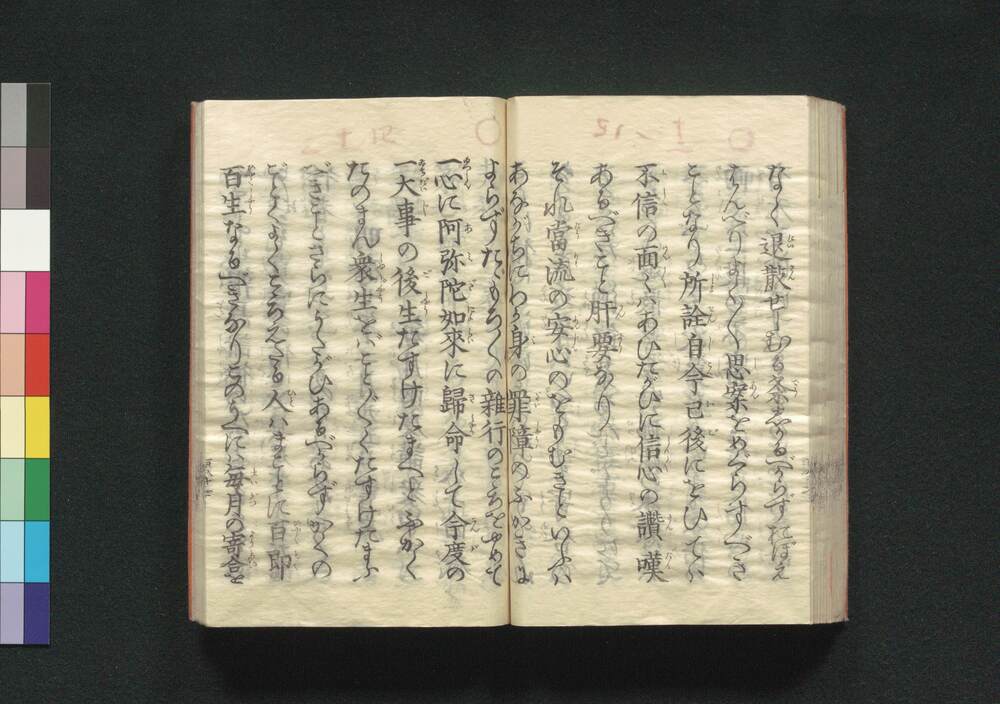 なく退散せしむる条しかるべからずおぼえ
はんべりよく〳〵思案をめぐらすべき
ことなり所詮自今已後にをひては
不信の面々はあひたがひに信心の讚嘆
あるべきこと肝要なり
それ當流の安心のをもむきといふは
あながちにわが身の罪障のふかきに
よらずたゞもろ〳〵の雜行のこゝろをやめて
一心に阿弥陀如來に歸命して今度の
一大事の後生たすけたまへとふかく
たのまん衆生をばこと〴〵くたすけたまふ
べきことさらにうたがひあるべからずかくの
ごとくよくこゝろえたる人はまことに百即
百生なるべきなりこのうへには毎月の寄合を